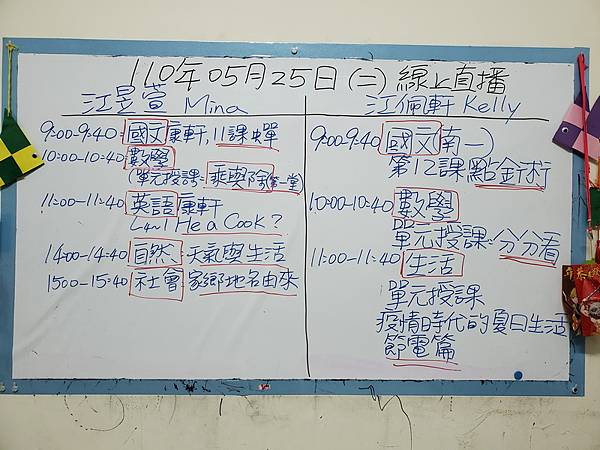 110年05月25日(二)線上直播
江昱萱 Mina
9:00-9:40=國文康軒,11課蟬
10:00-10:40數學
(單元授課=乘與除(第一堂)
11:00-11:40英語康軒
Is He a Cook?
14:00-14:40自然、天氣與生活
1500-15:40社會 家鄉地名由來
江佩軒 Kelly
9:00-9:40國文(南一)
第12課點金術
10:00-10:40數學
單元授課=分分看
11:00-11:40生活
單元授課
疫情時代的夏日生活
節電篇